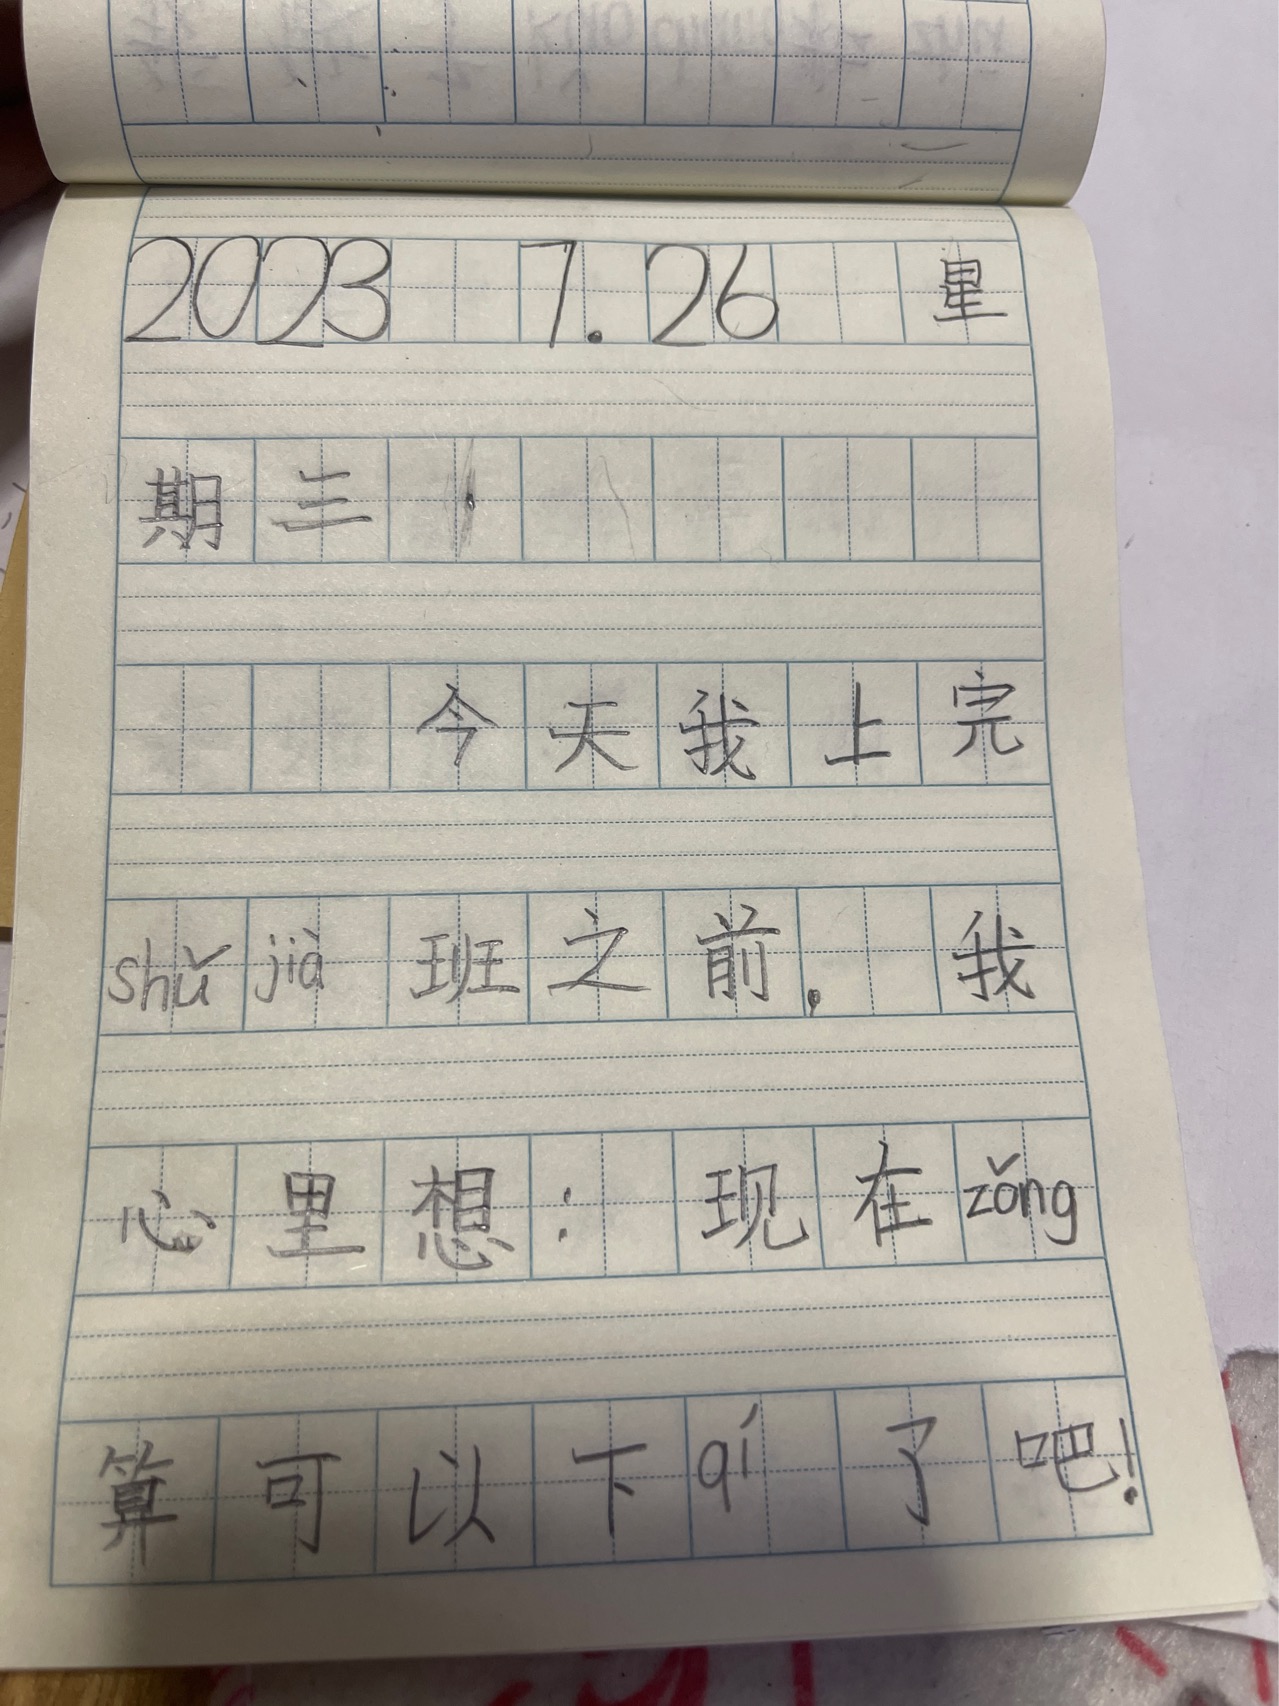 2023 7.26 星
期三
今天我上完
shǔ jià 班之前. 我
心里想: 现在 zǒng
算可以下 qí 了吧!